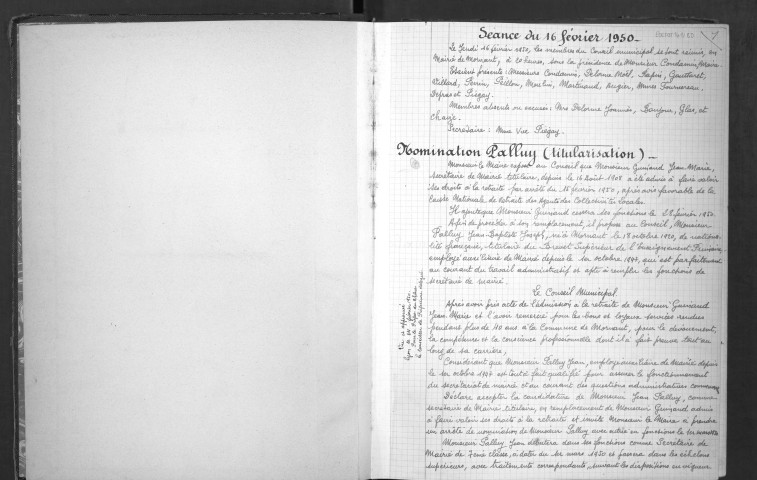 Séance du 16 février 1950.
Le Jeudi 16 février 1950, les membres du Conseil municipal se sont réunis, en
Mairie de Mornant, à 20 heures, sous la présidence de Monsieur Condamin, Maire.
Etaient présents : Messieurs Condamin, Delorme Noël, Rapin, Gaudaret,
Villard, Perrin, Peillon, Moulin, Martinaud, Augier, Mmes Journereau,
Defrès et Piégay.
Membres absents ou excusés : Mrs Delorme Joannès, Bonjour, Glas, et
Chaize.
Secrétaire : Mme Vve Piégay.
Nomination Palluy (titularisation)
Monsieur le Maire expose au Conseil que Monsieur Guinand Jean Marie,
secrétaire de Mairie titulaire, depuis le 16 août 1908 a été admis à faire valoir
ses droits à la retraite par arrêté du 15 février 1950, après avis favorable de la
Caisse Nationale de retraite des Agents des Collectivités locales.
Il ajoute que Monsieur Guinand cessera ses fonctions le 28 février 1950.
Afin de procéder à son remplacement, il propose au Conseil, Monsieur
Palluy Jean-Baptiste Joseph, né à Mornant le 18 octobre 1920, de nationa-
lité française, titulaire du Brevet Supérieur de l'Enseignement Primaire,
employé auxiliaire de Mairie depuis le 1er octobre 1947, qui est parfaitement
au courant du travail administratif et apte à remplir les fonctions de
secrétaire de mairie.
Le Conseil Municipal,
Après avoir pris acte de l'admission à la retraite de Monsieur Guinand
Jean Marie et l'avoir remercié pour les bons et loyaux services rendus
pendant plus de 40 ans à la Commune de Mornant, pour le dévouement,
la compétence et la conscience professionnelle dont il a fait preuve tout au
long de sa carrière,
Considérant que Monsieur Palluy Jean, employé auxiliaire de Mairie depuis
le 1er octobre 1947 est tout à fait qualifié pour assurer le fonctionnement
du secrétariat de mairie et au courant des questions administratives communales
Déclare accepter la candidature de Monsieur Jean Palluy, comme
secrétaire de Mairie titulaire, en remplacement de Monsieur Guinand admis
à faire valoir ses droits à la retraite et invite Monsieur le Maire à prendre
un arrêté de nomination de Monsieur Palluy avec entrée en fonctions le 1er mars 1950
Monsieur Palluy Jean débutera dans ses fonctions comme Secrétaire de
Mairie de 7eme classe, à dater du 1er mars 1950 et passera dans les échelons
supérieurs, avec traitements correspondants, suivant les dispositions en vigueur
Vu et approuvé